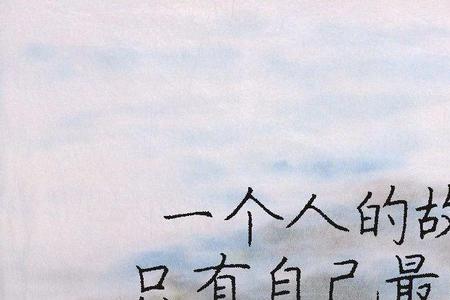 一个人的故
只有自己最